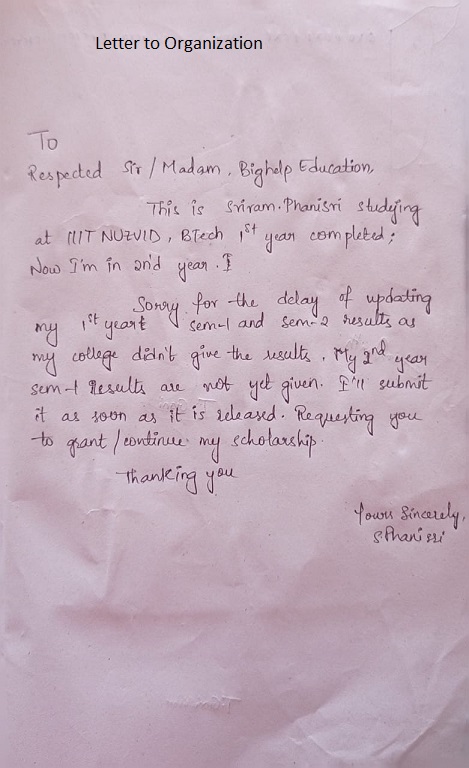 Letter to Organization
To
Respected Sir / Madam, Bighelp Education,
This is Sriram.Phanisri studying
at IIIT NUZVID, BTech 1st year completed;
Now I'm in 2nd year. I
Sorry for the delay of updating
my 1st year sem-1 and sem-2 results as
my college didn't give the results. My 2nd year
sem-1 Results are not yet given. I'll submit
it as soon as it is released. Requesting you
to grant / continue my scholarship.
Thanking you
Yours Sincerely,
S.Phani sri